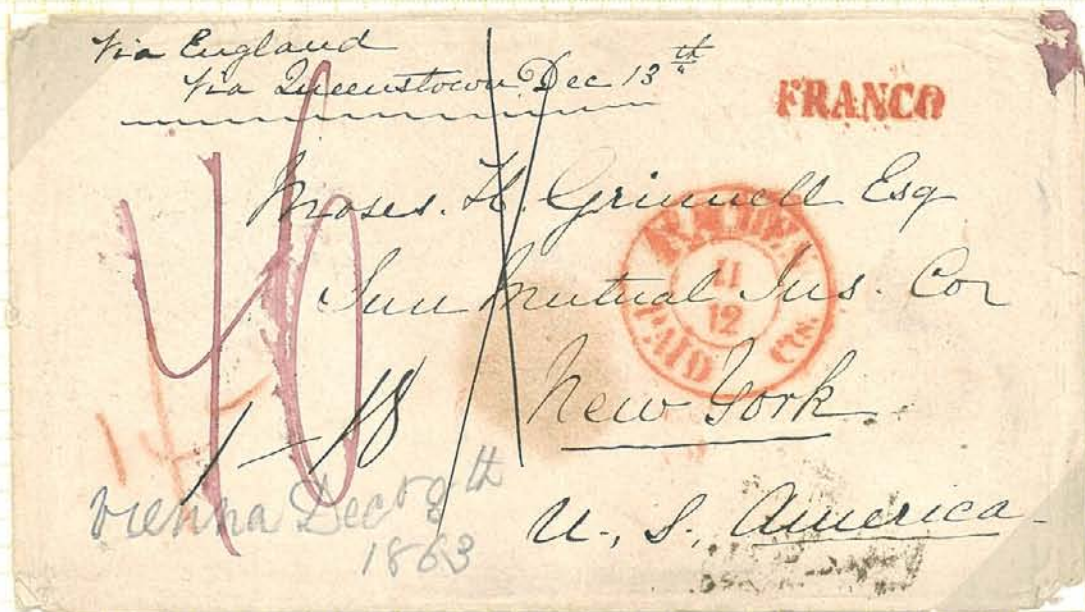 Via England
Via Queenstown Dec 13th
FRANCO
Moses. H. Grinnell Esq
Sun Mutual Ins. Cor
New York
U., S., America
PAID
11
12
Cts
40
1 - 18
Vienna Dec 8th
1863